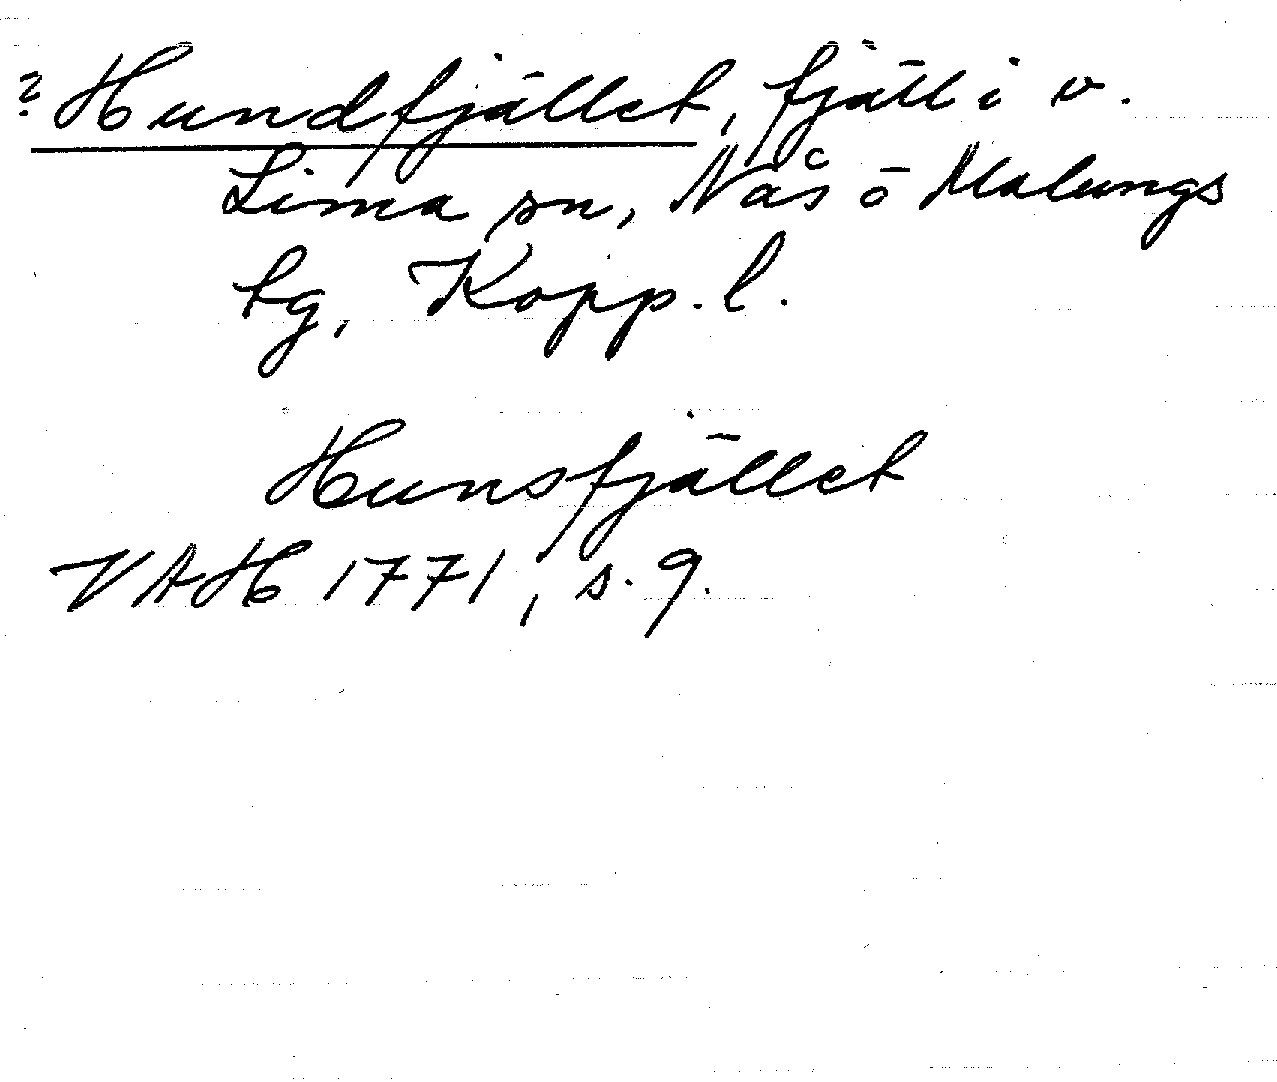 ? Hundfjället, fjäll i v.
Lima sn, Nås o Malungs
tg, Kopp. l.
Hunsfjället
VAH 1771, s. 9.